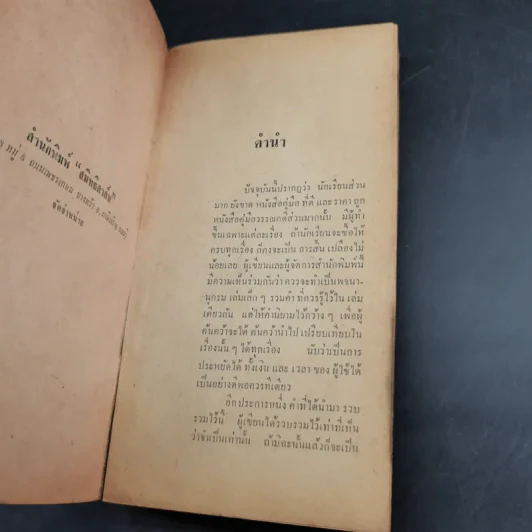 สำนักพิมพ์ "สมิทธิสาส์น"
จัดจำหน่าย
คำนำ
ปัจจุบันนี้ปรากฏว่า นักเรียนส่วน
มาก ยังขาด หนังสือคู่มือ ที่ดี และราคา ถูก
หนังสือคู่มือวรรณคดีส่วนมากนั้น มีผู้ทำ
ขึ้นเฉพาะแต่ละเรื่อง ถ้านักเรียนจะซื้อให้
ครบทุกเรื่อง ก็คงจะเป็น การสิ้น เปลืองไม่
น้อยเลย ผู้เขียนและผู้จัดการสำนักพิมพ์นี้
มีความเห็นร่วมกันว่า ควรจะทำเป็นพจนา-
นุกรม เล่มเล็ก ๆ รวมคำ ที่ควรรู้ไว้ใน เล่ม
เดียวกัน แต่ให้คำนิยามไว้กว้าง ๆ เพื่อผู้
ค้นคว้าจะได้ ค้นคว้านำไป เปรียบเทียบใน
เรื่องนั้น ๆ ได้ทุกเรื่อง นับว่าเป็นการ
ประหยัดได้ ทั้งเงิน และ เวลา ของ ผู้ใช้ได้
เป็นอย่างดีพอควรทีเดียว
อีกประการหนึ่ง คำที่ได้นำมา รวบ
รวมไว้นี้ ผู้เขียนได้รวบรวมไว้เท่าที่เห็น
ว่าจำเป็นเท่านั้น ถ้ามิฉะนั้นแล้วก็จะเป็น